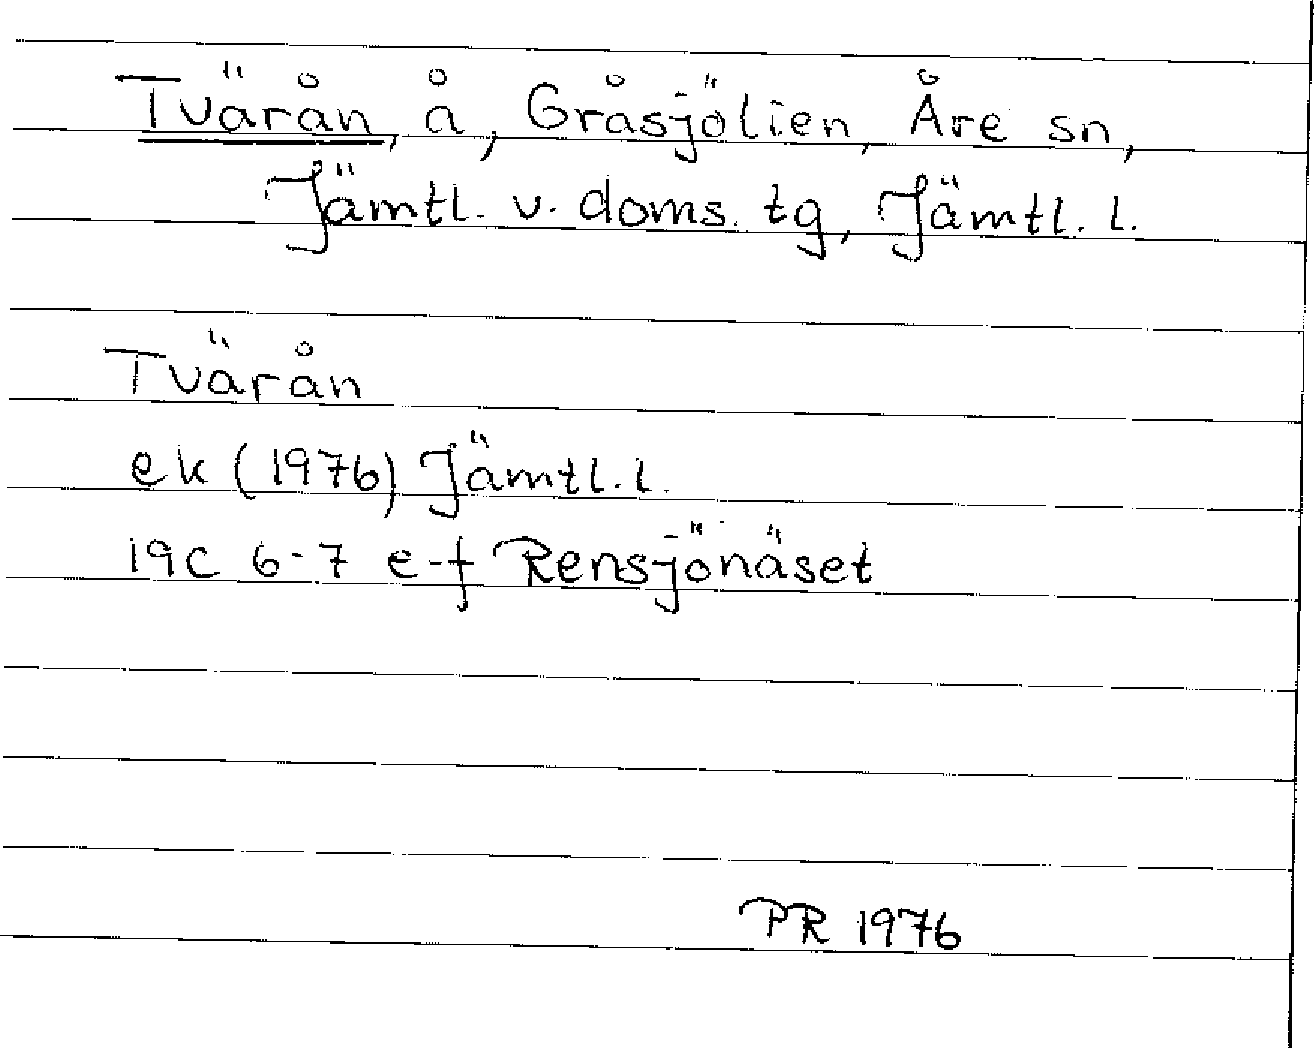 Tvärån, å, Gråsjölien, Åre sn,
Jämtl. v. doms. tg, Jämtl. l.
Tvärån
ek (1976) Jämtl. l.
19C 6-7 e-f Rensjönäset
PR 1976